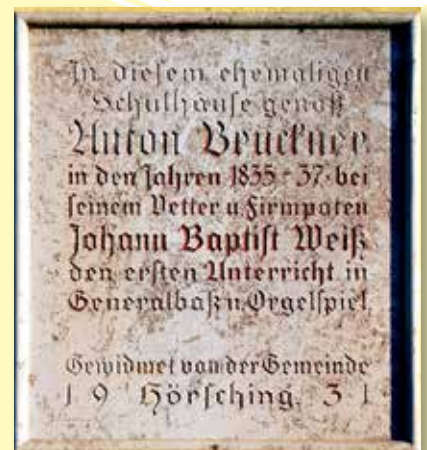 In diesem ehemaligen
Schulhause genoß
Anton Bruckner
in den Jahren 1835-37 bei
seinem Vetter u. Firmpaten
Johann Baptist Weiß
den ersten Unterricht in
Generalbaß u. Orgelspiel
Gewidmet von der Gemeinde
19 Hörsching 31